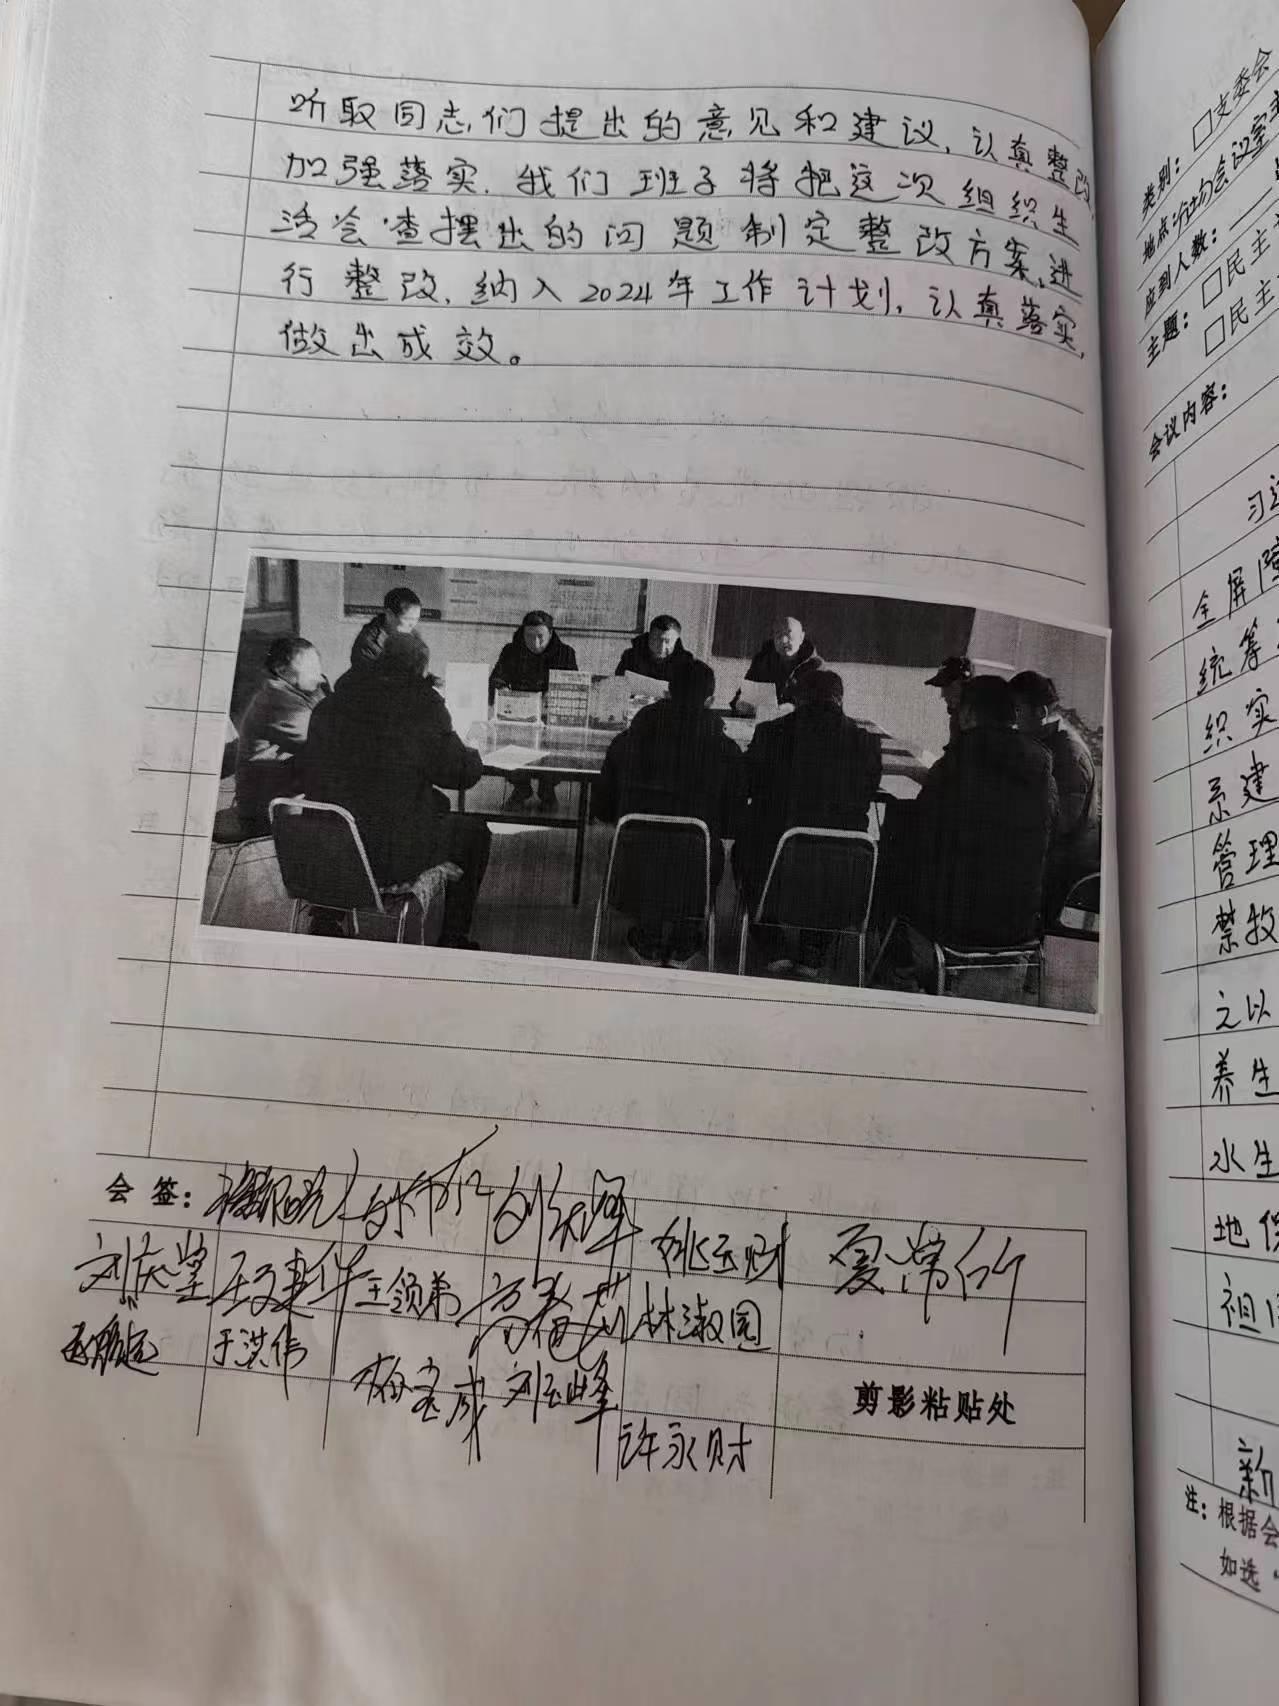 听取同志们提出的意见和建议，认真整改，
加强落实。我们班子将把这次组织生
活会查摆出的问题制定整改方案，进
行整改，纳入2024年工作计划，认真落实，
做出成效。
会 签：
刘庆望
王领弟
林淑园
于洪伟
刘玉峰
许永财
剪影粘贴处
类别：□支委会
地点：
会议室
应到人数：
□民主
主题：
□民主
会议内容：
习近
全屏障
统筹
织实
系建
管理
禁牧
之以
养生
水生
地保
祖
新
注：根据会
如选